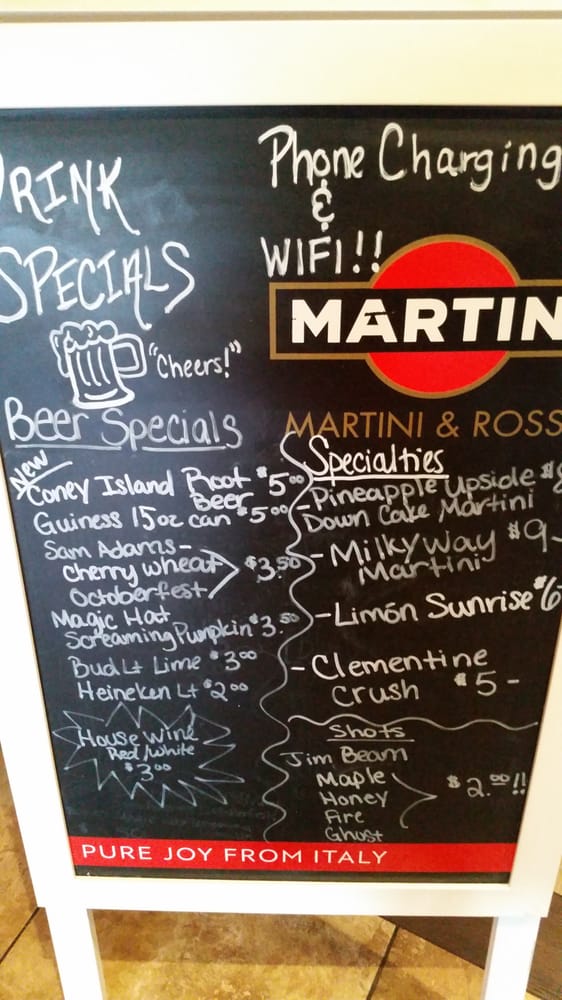 DRINK
SPECIALS
"Cheers!"
Beer Specials
New
Coney Island Root $5.00
Beer
Guiness 15oz can $5.00
Sam Adams-
Cherry Wheat
Octoberfest $3.50
Magic Hat
Screaming Pumpkin $3.50
Bud Lt Lime $3.00
Heineken Lt $2.00
House Wine
Red/White
$3.00
Phone Charging
&
WIFI!!
MARTIN
MARTINI & ROSS
Specialties
-Pineapple Upside
Down Cake Martini
-Milkyway $9-
Martini
-Limón Sunrise $6
-Clementine
Crush $5-
Shots
Jim Beam
Maple
Honey $2.00!!
Fire
Ghost
PURE JOY FROM ITALY